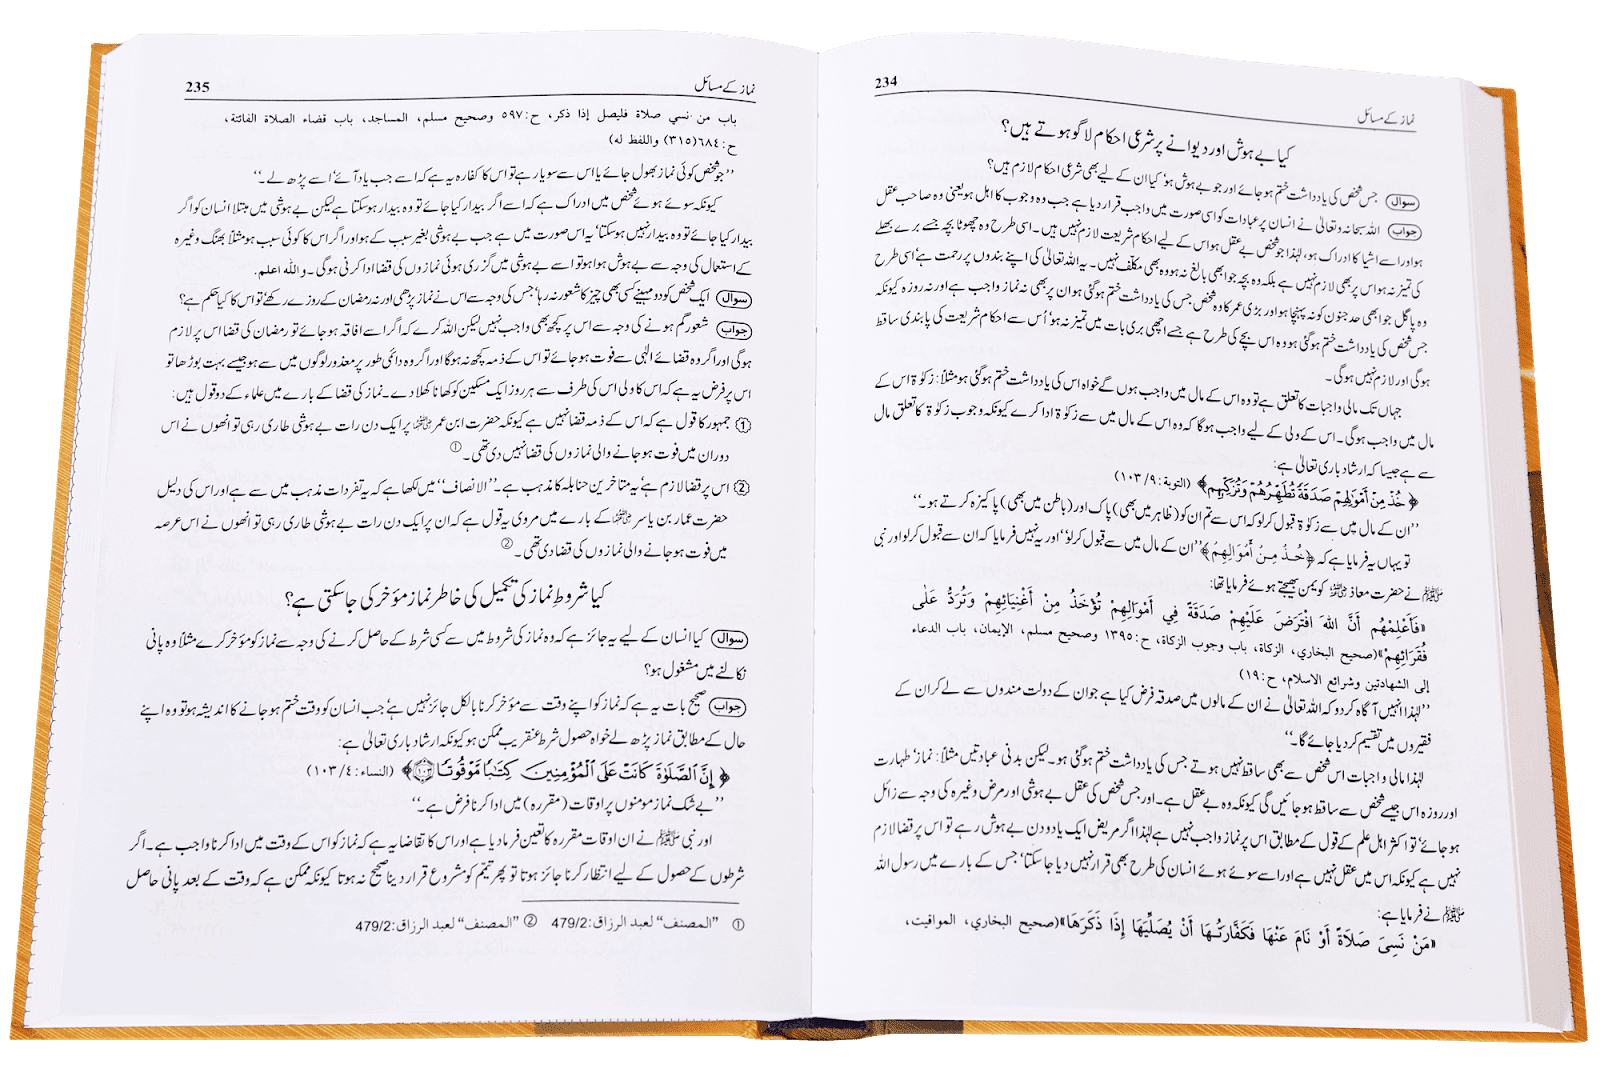 234
نماز کے مسائل
کیا بے ہوش اور دیوانے پر شرعی احکام لاگو ہوتے ہیں؟
سوال جس شخص کی یادداشت ختم ہو جائے اور جو بے ہوش ہو‘ کیا ان کے لیے بھی شرعی احکام لازم ہیں؟
جواب اللہ سبحانہ وتعالیٰ نے انسان پر عبادات کو اسی صورت میں واجب قرار دیا ہے جب وہ وجوب کا اہل ہو یعنی وہ صاحب عقل
ہو اور اسے اشیا کا ادراک ہو، لہٰذا جو شخص بے عقل ہو اس کے لیے احکام شریعت لازم نہیں ہیں۔ اسی طرح وہ چھوٹا بچہ جسے برے بھلے
کی تمیز نہ ہو اس پر بھی لازم نہیں ہے بلکہ وہ بچہ جو ابھی بالغ نہ ہو وہ بھی مکلّف نہیں۔ یہ اللہ تعالیٰ کی اپنے بندوں پر رحمت ہے‘ اسی طرح
وہ پاگل جو ابھی حد جنون کو نہ پہنچا ہو اور بڑی عمر کا وہ شخص جس کی یادداشت ختم ہو گئی ہو ان پر بھی نہ نماز واجب ہے اور نہ روزہ کیونکہ
جس شخص کی یادداشت ختم ہو گئی ہو وہ اس بچے کی طرح ہے جسے اچھی بری بات میں تمیز نہ ہو‘ اُس سے احکام شریعت کی پابندی ساقط
ہو گی اور لازم نہیں ہو گی۔
جہاں تک مالی واجبات کا تعلق ہے تو وہ اس کے مال میں واجب ہوں گے خواہ اس کی یادداشت ختم ہو گئی ہو مثلاً: زکوٰۃ اس کے
مال میں واجب ہو گی۔ اس کے ولی کے لیے واجب ہو گا کہ وہ اس کے مال میں سے زکوٰۃ ادا کرے کیونکہ وجوب زکوٰۃ کا تعلق مال
سے ہے جیسا کہ ارشاد باری تعالیٰ ہے:
﴿ خُذْ مِنْ أَمْوَالِهِمْ صَدَقَةً تُطَهِّرُهُمْ وَتُزَكِّيهِم ﴾ (التوبة: ٩/ ١٠٣)
’’ان کے مال میں سے زکوٰۃ قبول کر لو کہ اس سے تم ان کو (ظاہر میں بھی) پاک اور (باطن میں بھی) پاکیزہ کرتے ہو۔‘‘
تو یہاں یہ فرمایا ہے کہ ﴿خُذْ مِنْ أَمْوَالِهِمْ﴾ ’’ان کے مال میں سے قبول کر لو‘‘ اور یہ نہیں فرمایا کہ ان سے قبول کر لو اور نبی
ﷺ نے حضرت معاذ رضی اللہ عنہ کو یمن بھیجتے ہوئے فرمایا تھا:
«فَأَعْلِمْهُم أَنَّ اللهَ افْتَرَضَ عَلَيْهِمْ صَدَقَةً فِي أَمْوَالِهِمْ تُؤْخَذُ مِنْ أَغْنِيَائِهِمْ وَتُرَدُّ عَلَى
فُقَرَائِهِمْ»(صحيح البخاري، الزكاة، باب وجوب الزكاة، ح: ١٣٩٥ وصحيح مسلم، الإيمان، باب الدعاء
إلى الشهادتين وشرائع الاسلام، ح: ١٩)
’’لہٰذا انہیں آگاہ کر دو کہ اللہ تعالیٰ نے ان کے مالوں میں صدقہ فرض کیا ہے جو ان کے دولت مندوں سے لے کر ان کے
فقیروں میں تقسیم کر دیا جائے گا۔‘‘
لہٰذا مالی واجبات اس شخص سے بھی ساقط نہیں ہوتے جس کی یادداشت ختم ہو گئی ہو۔ لیکن بدنی عبادتیں مثلاً: نماز‘ طہارت
اور روزہ اس جیسے شخص سے ساقط ہو جائیں گی کیونکہ وہ بے عقل ہے۔ اور جس شخص کی عقل بے ہوشی اور مرض وغیرہ کی وجہ سے زائل
ہو جائے‘ تو اکثر اہل علم کے قول کے مطابق اس پر نماز واجب نہیں ہے لہٰذا اگر مریض ایک یا دو دن بے ہوش رہے تو اس پر قضا لازم
نہیں ہے کیونکہ اس میں عقل نہیں ہے اور اسے سوئے ہوئے انسان کی طرح بھی قرار نہیں دیا جا سکتا‘ جس کے بارے میں رسول اللہ
ﷺ نے فرمایا ہے:
«مَنْ نَسِيَ صَلَاةً أَوْ نَامَ عَنْهَا فَكَفَّارَتُهَا أَنْ يُصَلِّيَهَا إِذَا ذَكَرَهَا»(صحيح البخاري، المواقيت،
235
نماز کے مسائل
باب من نسي صلاة فليصل إذا ذكر، ح: ٥٩٧ وصحيح مسلم، المساجد، باب قضاء الصلاة الفائتة،
ح: ٦٨٤ (٣١٥) واللفظ له)
’’جو شخص کوئی نماز بھول جائے یا اس سے سویا رہے تو اس کا کفارہ یہ ہے کہ اسے جب یاد آئے‘ اسے پڑھ لے۔‘‘
کیونکہ سوئے ہوئے شخص میں ادراک ہے کہ اسے اگر بیدار کیا جائے تو وہ بیدار ہو سکتا ہے لیکن بے ہوشی میں مبتلا انسان کو اگر
بیدار کیا جائے تو وہ بیدار نہیں ہو سکتا‘ یہ اس صورت میں ہے جب بے ہوشی بغیر سبب کے ہو اور اگر اس کا کوئی سبب ہو مثلاً بھنگ وغیرہ
کے استعمال کی وجہ سے بے ہوش ہوا ہو تو اسے بے ہوشی میں گزری ہوئی نمازوں کی قضا ادا کرنی ہو گی۔ واللہ اعلم.
سوال ایک شخص کو دو مہینے کسی بھی چیز کا شعور نہ رہا‘ جس کی وجہ سے اس نے نماز پڑھی اور نہ رمضان کے روزے رکھے تو اس کا کیا حکم ہے؟
جواب شعور گم ہونے کی وجہ سے اس پر کچھ بھی واجب نہیں لیکن اللہ کرے کہ اگر اسے افاقہ ہو جائے تو رمضان کی قضا اس پر لازم
ہو گی اور اگر وہ قضائے الٰہی سے فوت ہو جائے تو اس کے ذمہ کچھ نہ ہو گا اور اگر وہ دائمی طور پر معذور لوگوں میں سے ہو جیسے بہت بوڑھا تو
اس پر فرض یہ ہے کہ اس کا ولی اس کی طرف سے ہر روز ایک مسکین کو کھانا کھلا دے۔ نماز کی قضا کے بارے میں علماء کے دو قول ہیں:
① جمہور کا قول ہے کہ اس کے ذمہ قضا نہیں ہے کیونکہ حضرت ابن عمر رضی اللہ عنہما پر ایک دن رات بے ہوشی طاری رہی تو انھوں نے اس
دوران میں فوت ہو جانے والی نمازوں کی قضا نہیں دی تھی۔ ①
② اس پر قضا لازم ہے‘ یہ متاخرین حنابلہ کا مذہب ہے۔ ’’الانصاف‘‘ میں لکھا ہے کہ یہ تفردات مذہب میں سے ہے اور اس کی دلیل
حضرت عمار بن یاسر رضی اللہ عنہما کے بارے میں مروی یہ قول ہے کہ ان پر ایک دن رات بے ہوشی طاری رہی تو انھوں نے اس عرصہ
میں فوت ہو جانے والی نمازوں کی قضا دی تھی۔ ②
کیا شروطِ نماز کی تکمیل کی خاطر نماز مؤخر کی جا سکتی ہے؟
سوال کیا انسان کے لیے یہ جائز ہے کہ وہ نماز کی شروط میں سے کسی شرط کے حاصل کرنے کی وجہ سے نماز کو مؤخر کرے مثلاً وہ پانی
نکالنے میں مشغول ہو؟
جواب صحیح بات یہ ہے کہ نماز کو اپنے وقت سے مؤخر کرنا بالکل جائز نہیں ہے‘ جب انسان کو وقت ختم ہو جانے کا اندیشہ ہو تو وہ اپنے
حال کے مطابق نماز پڑھ لے خواہ حصول شرط عنقریب ممکن ہو کیونکہ ارشاد باری تعالیٰ ہے:
﴿ إِنَّ الصَّلَاةَ كَانَتْ عَلَى الْمُؤْمِنِينَ كِتَابًا مَّوْقُوتًا ﴾ (النساء: ٤/ ١٠٣)
’’بے شک نماز مومنوں پر اوقات (مقررہ) میں ادا کرنا فرض ہے۔‘‘
اور نبی ﷺ نے ان اوقات مقررہ کا تعین فرما دیا ہے اور اس کا تقاضا یہ ہے کہ نماز کو اس کے وقت میں ادا کرنا واجب ہے۔ اگر
شرطوں کے حصول کے لیے انتظار کرنا جائز ہوتا تو پھر تیمّم کو مشروع قرار دینا صحیح نہ ہوتا کیونکہ ممکن ہے کہ وقت کے بعد پانی حاصل
① ”المصنف“ لعبد الرزاق: 479/2 ② ”المصنف“ لعبد الرزاق: 479/2